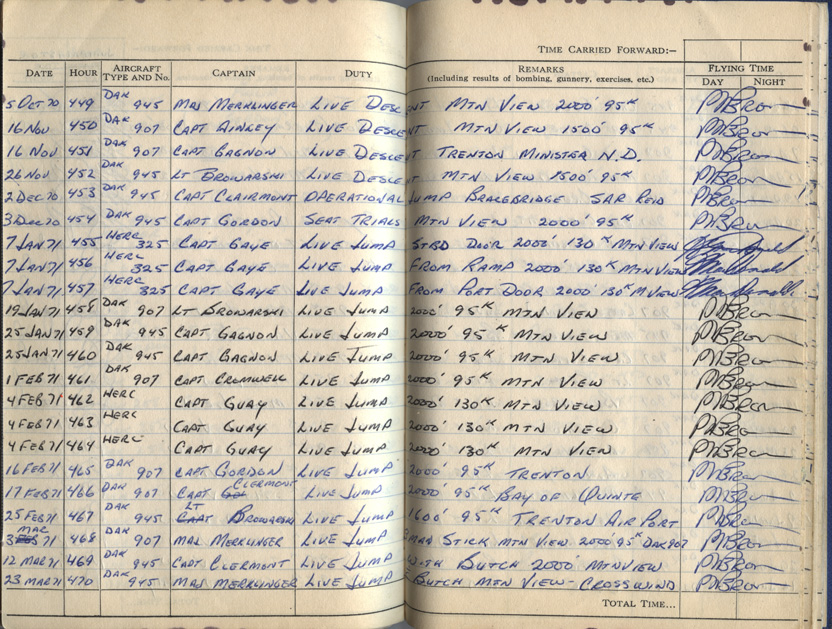 TIME CARRIED FORWARD:—
DATE HOUR AIRCRAFT TYPE AND No. CAPTAIN DUTY REMARKS (Including results of bombing, gunnery, exercises, etc.) FLYING TIME DAY NIGHT
5 OCT 70 449 DAK 945 MAJ MERKLINGER LIVE DESCENT MTN VIEW 2000' 95K
16 NOV 450 DAK 907 CAPT AINLEY LIVE DESCENT MTN VIEW 1500' 95K
16 NOV 451 DAK 907 CAPT GAGNON LIVE DESCENT TRENTON MINISTER N.D.
26 NOV 452 DAK 945 LT BROWARSKI LIVE DESCENT MTN VIEW 1500' 95K
2 DEC 70 453 DAK 945 CAPT CLAIRMONT OPERATIONAL JUMP BRACEBRIDGE SAR REID
3 DEC 70 454 DAK 945 CAPT GORDON SEAT TRIALS MTN VIEW 2000' 95K
7 JAN 71 455 HERC 325 CAPT GAYE LIVE JUMP STBD DOOR 2000' 130K MTN VIEW
7 JAN 71 456 HERC 325 CAPT GAYE LIVE JUMP FROM RAMP 2000' 130K MTN VIEW
7 JAN 71 457 HERC 325 CAPT GAYE LIVE JUMP FROM PORT DOOR 2000' 130K M VIEW
19 JAN 71 458 DAK 907 LT BROWARSKI LIVE JUMP 2000' 95K MTN VIEW
25 JAN 71 459 DAK 945 CAPT GAGNON LIVE JUMP 2000' 95K MTN VIEW
25 JAN 71 460 DAK 945 CAPT GAGNON LIVE JUMP 2000' 95K MTN VIEW
1 FEB 71 461 DAK 907 CAPT CROMWELL LIVE JUMP 2000' 95K MTN VIEW
4 FEB 71 462 HERC CAPT GUAY LIVE JUMP 2000' 130K MTN VIEW
4 FEB 71 463 HERC CAPT GUAY LIVE JUMP 2000' 130K MTN VIEW
4 FEB 71 464 HERC CAPT GUAY LIVE JUMP 2000' 130K MTN VIEW
16 FEB 71 465 DAK 907 CAPT GORDON LIVE JUMP 2000' 95K TRENTON
17 FEB 71 466 DAK 907 CAPT CLERMONT LIVE JUMP 2000' 95K BAY OF QUINTE
25 FEB 71 467 DAK 945 LT BROWARSKI LIVE JUMP 1600' 95K TRENTON AIR PORT
3 MAR 71 468 DAK 907 MAJ MERKLINGER LIVE JUMP MAN STICK MTN VIEW 2000' 95K DAK 907
12 MAR 71 469 DAK 945 CAPT CLERMONT LIVE JUMP WITH BUTCH 2000' MTN VIEW
23 MAR 71 470 DAK 945 MAJ MERKLINGER LIVE JUMP BUTCH MTN VIEW - CROSSWIND
TOTAL TIME...